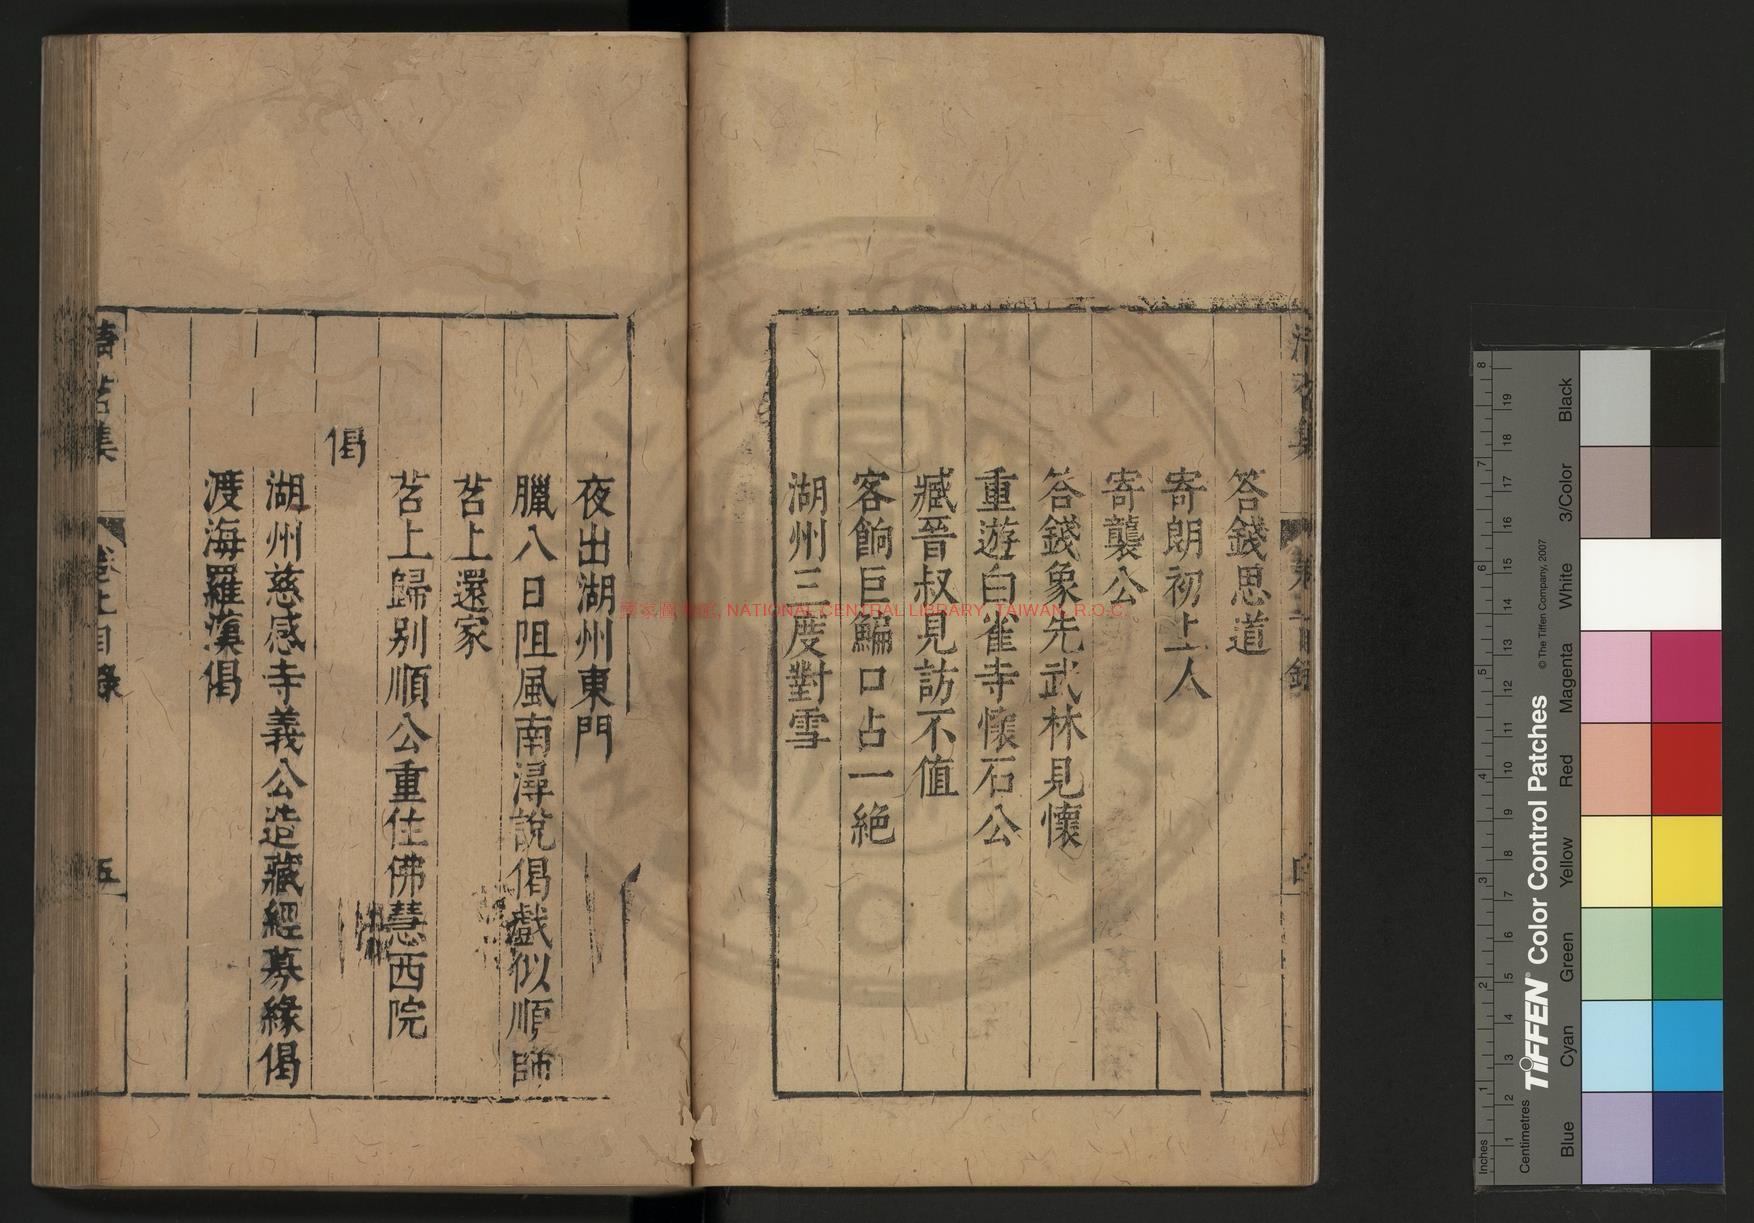 答錢思道
寄朗初上人
寄襲公
答錢象先武林見懷
重遊白雀寺懷石公
臧晉叔見訪不值
客餉巨鯿口占一絕
湖州三度對雪
夜出湖州東門
臘八日阻風南潯說偈戲似順師
苕上還家
苕上歸别順公重住佛慧西院
偈
湖州慈感寺義公造藏經募緣偈
渡海羅漢偈
集
卷七目錄
五
NATIONAL CENTRAL LIBRARY, TAIWAN, R.O.C.
TIFFEN® Color Control Patches
© The Tiffen Company, 2007
Inches
Centimetres
Blue
Cyan
Green
Yellow
Red
Magenta
White
3/Color
Black